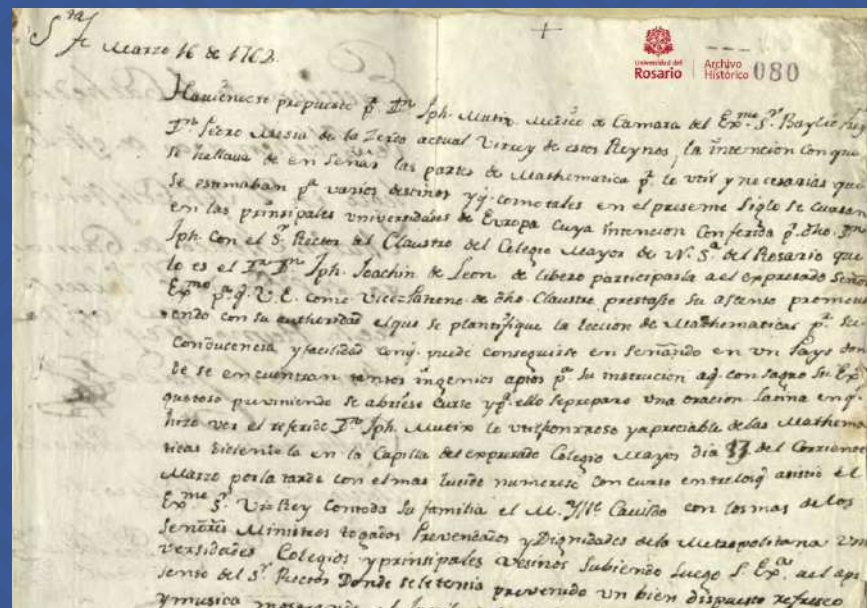 S.ta fe Marzo 16 de 1762.
Universidad del
Rosario
Archivo
Histórico
080
Haviendose propuesto p.r D.n Jph. Mutis Medico de Camara del Ex.mo S.r Baylio Frey
D.n Pedro Mesia de la Zerda actual Virrey de estos Reynos, la intencion con que
se hallava de en señar las partes de Mathematica p.r lo util y necesarias que
se estimaban p.a varios destinos y q.e como tales en el presente Siglo se cursan
en las prinsipales universidades de Europa cuya intencion Conferida p.r dho. D.n
Jph. con el S.r Rector del Claustro del Colegio Mayor de N. S.a del Rosario que
lo es el D.r D.n Jph. Joachin de Leon. de libero participarla a el expresado Señor
Ex.mo p.a q.e V.E. como Vice-Patrono de dho. Claustro prestasse su ascenso promovi
endo con su authoridad el que se plantifique la leccion de Mathematicas p.r
Conducencia y facilidad conq.e puede conseguirse en señando en un Pays don
de se encuentran tantos ingenios aptos p.a su instrucion aq.e con sagro su Ex.a
gustoso previniendo se abriese Curso y p.a ello se preparo una oracion latina en q.e
hizo ver el referido D.n Jph. Mutis lo util honrroso y apreciable de las Mathema
ticas diciendola en la Capilla del expresado Colegio Mayor dia del Corriente
Marzo por la tarde con el mas lucido numeroso con curso entre losq.e asistio el
Ex.mo S.r Virrey con toda su familia el M. Ill.e Cavildo con los mas de los
Señores Ministros togados Prevendados y Dignidades dela Metropolitana Uni
versidades Colegios y prinsipales vesinos Subiendo luego S. Ex.a a el apo
sento del S.r Rector Donde se le tenia prevenido un bien dispuesto refresco
y musica